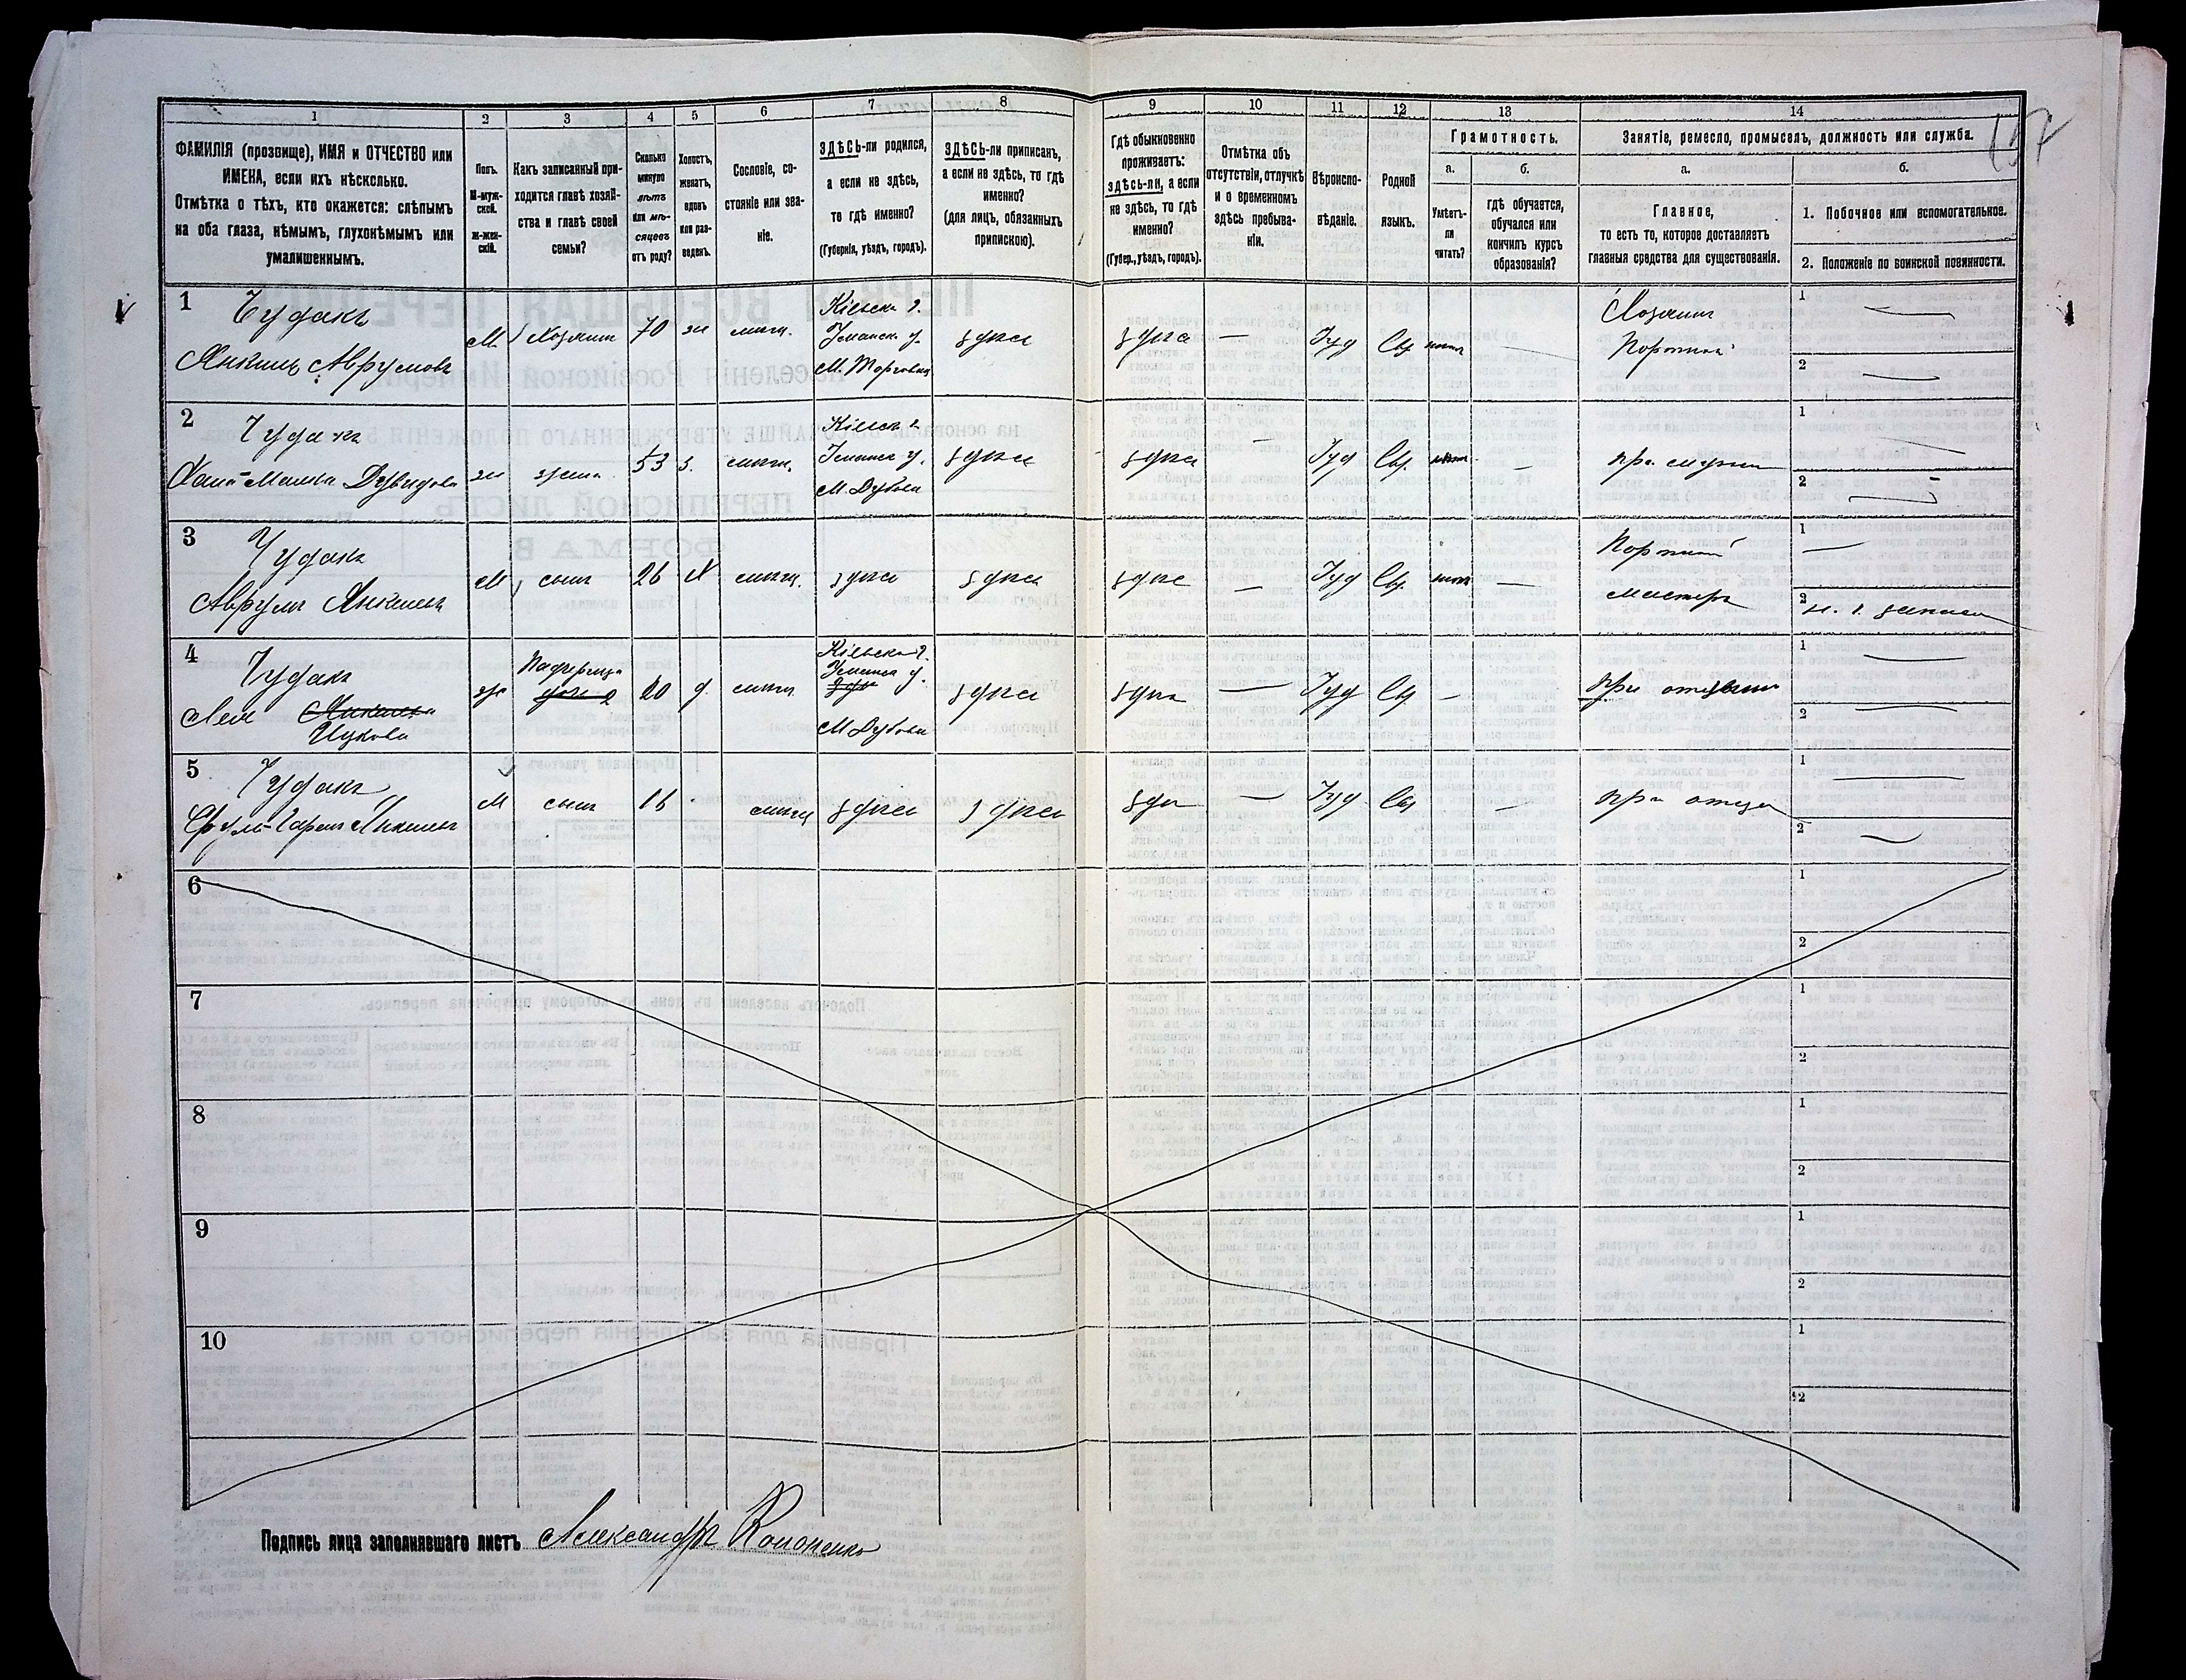 1 2 3 4 5 6 7 8 9 10 11 12 13 14
ФАМИЛІЯ (прозвище), ИМЯ и ОТЧЕСТВО или
ИМЕНА, если ихъ нѣсколько.
Отмѣтка о тѣхъ, кто окажется: слѣпымъ
на оба глаза, нѣмымъ, глухонѣмымъ или
умалишеннымъ.
Полъ.
М-муж-
ской.
Ж-жен-
скій.
Какъ записанный при-
ходится главѣ хозяй-
ства и главѣ своей
семьи?
Сколько
минуло
лѣтъ
или мѣ-
сяцевъ
отъ роду?
Холостъ,
женатъ,
вдовъ
или раз-
веденъ.
Сословіе, со-
стояніе или зва-
ніе.
ЗДѢСЬ-ли родился,
а если не здѣсь,
то гдѣ именно?
(Губернія, уѣздъ, городъ).
ЗДѢСЬ-ли приписанъ,
а если не здѣсь, то гдѣ
именно?
(для лицъ, обязанныхъ
припискою).
Гдѣ обыкновенно
проживаетъ:
здѣсь-ли, а если
не здѣсь, то гдѣ
именно?
(Губер., уѣздъ, городъ).
Отмѣтка объ
отсутствіи, отлучкѣ
и о временномъ
здѣсь пребыва-
ніи.
Вѣроиспо-
вѣданіе.
Родной
языкъ.
Грамотность.
а.
Умѣетъ-
ли
читать?
б.
гдѣ обучается,
обучался или
кончилъ курсъ
образованія?
Занятіе, ремесло, промыселъ, должность или служба.
а.
Главное,
то есть то, которое доставляетъ
главныя средства для существованія.
б.
1. Побочное или вспомогательное.
2. Положеніе по воинской повинности.
1 Чудакъ
Янкель Аврумовъ
М 1 Хозяинъ 70 ж мѣщ.
Кіевск. г.
Уманск. у.
М. Торговица
здѣсь здѣсь — Іуд Евр
Хозяинъ
Портной
1 —
2 —
2 Чудакъ
Хая-Малка Дувидова
ж жена 53 з. мѣщ.
Кіевск. г.
Уманск. у.
М. Дубова
здѣсь здѣсь — Іуд Евр. —
при мужѣ
1 —
2 —
3 Чудакъ
Аврумъ Янкелевъ
М сынъ 26 Х мѣщ. здѣсь здѣсь здѣсь — Іуд Евр. —
Портной
мастеръ
1 —
2
4 Чудакъ
Лея Янкелева
Ицкова
ж Падчерица
20 д. мѣщ.
Кіевск. г.
Уманск. у.
М. Дубова
здѣсь здѣсь — Іуд Евр —
при отчимѣ
1 —
2 —
5 Чудакъ
М сынъ 16 мѣщ здѣсь здѣсь здѣсь — Іуд Евр —
при отцѣ
1 —
2 —
6 1
2
7 1
2
8 1
2
9 1
2
10 1
2
Подпись лица заполнявшаго листъ Александръ Кононенко